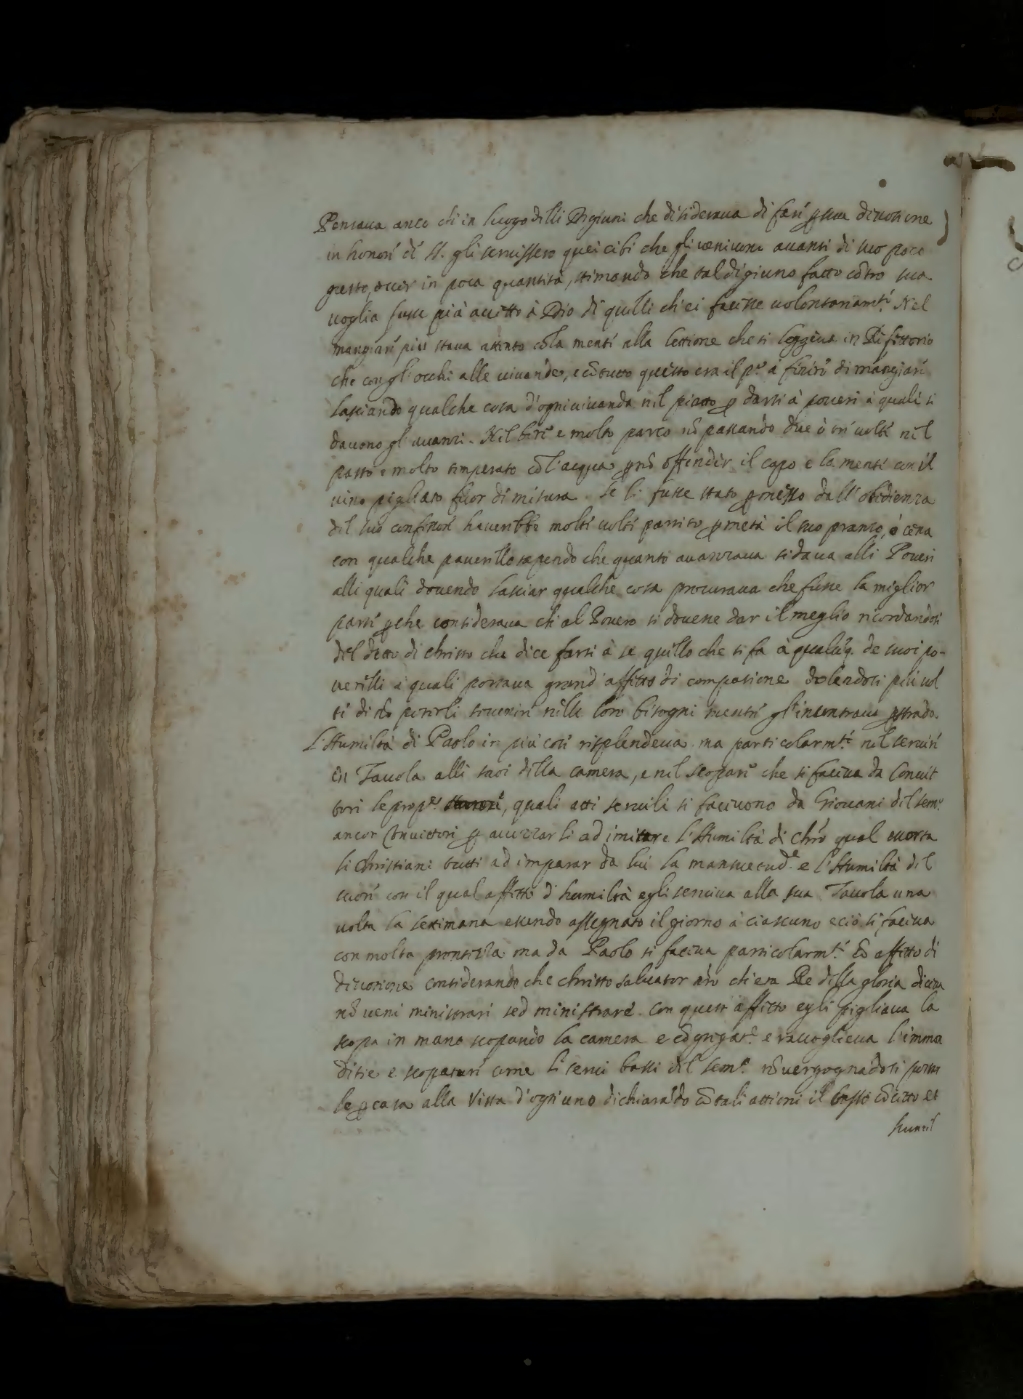 Pensava anco ch'in luogo delli Digiuni che desiderava di fare p sua divotione
in honore di S. gli servissero quei cibi che gli venivono avanti di suo poco
gusto, over in poca quantità, stimando che tal digiuno fatto cõtro sua
voglia fusse più accetto à Dio di quelli ch'ei facesse volontariamte. Nel
mangiare più stava attento cõla mente alla lettione che si leggeva in Refettorio
che con gl'occhi alle vivande, e cõtutto questo era il po. à finire di mangiare
lasciando qualche cosa d'ogni vivanda nel piatto p darsi à poveri à quali si
davono gl'avanzi. Nel bere e molto parco nõ passando due ò tre volte nel
pasto e molto temperato cõ l'acqua p nõ offender il capo e la mente con il
vino pigliato fuor di misura. Se li fusse stato pmesso dall'obedienza
del suo confessore haverebbe molte volte partito p metà il suo pranso, ò cena
con qualche poverello sapendo che quanto avanzava si dava alli Poveri
alli quali dovendo lasciar qualche cosa procurava che fusse la miglior
parte pche considerava ch'al Povero si dovesse dar il meglio ricordandosi
del detto di Christo che dice farsi à se quello che si fa à qualũq. de suoi po-
verelli à quali portava grand'affetto di compasione dolendosi più vol
te di nõ poterli sovenire nelle loro bisogni mentre gl'incontrava p strada.
L'Humiltà di Paolo in più cose risplendeva ma particolarmte. nel servire
in Tavola alli suoi della camera, e nel scopare che si faceva da Convit
tori le prope. , quali atti servili si facevono da Giovani del Semo.
ancor Convittori p avezzarli ad imitare l'Humiltà di Chro qual esorta
li Christiani tutti ad imparar da lui la mansuetude. e l'Humiltà del
cuore con il qual affetto d'humiltà egli serviva alla sua Tavola una
volta la settimana essendo assegnato il giorno à ciascuno e ciò si faceva
con molta prontezza ma da Paolo si faceva particolarmte. cõ affetto di
divotione considerando che Christo Salvator nro ch'era Re della gloria diceva
nõ veni ministrari sed ministrare. Con questo affetto egli pigliava la
scopa in mano scopando la camera e cõgregate. e raccoglieva l'immo
ditie e scopature come li servi bassi del Semo. nõ vergognãdosi portar
le p casa alla Vista d'ogni uno dichiarãdo cõ tali attioni il basso cõcetto et
humil